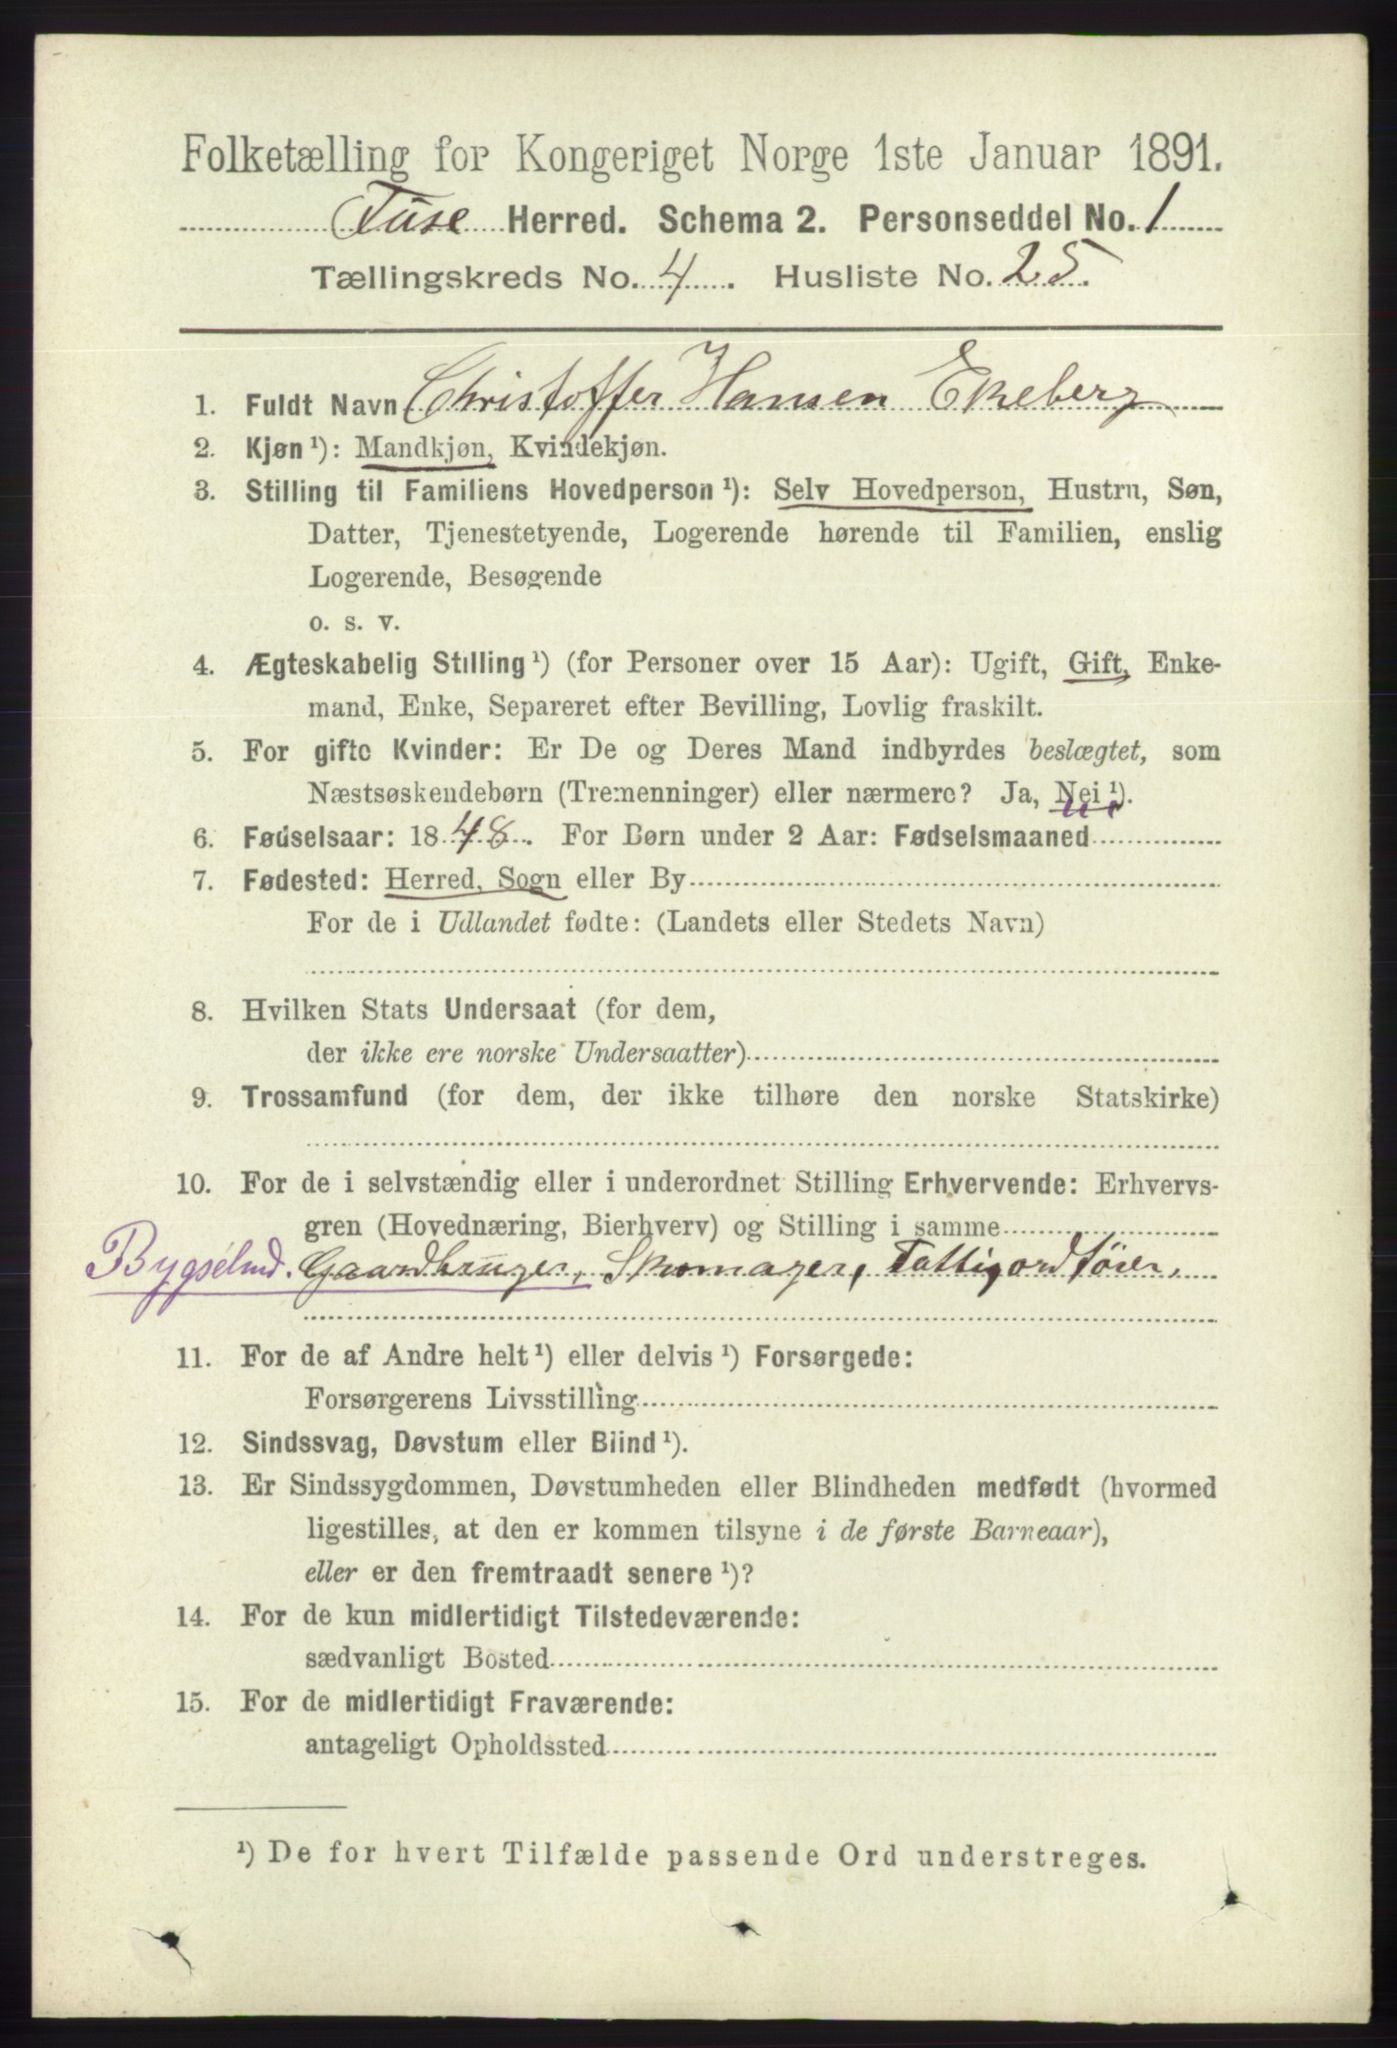 Folketælling for Kongeriget Norge 1ste Januar 1891.
Fuse Herred. Schema 2. Personseddel No. 1
Tællingskreds No. 4. Husliste No. 25.
1. Fuldt Navn Christoffer Hansen Ekeberg
2. Kjøn ¹): Mandkjøn, Kvindekjøn.
3. Stilling til Familiens Hovedperson ¹): Selv Hovedperson, Hustru, Søn,
Datter, Tjenestetyende, Logerende hørende til Familien, enslig
Logerende, Besøgende
o. s. v.
4. Ægteskabelig Stilling ¹) (for Personer over 15 Aar): Ugift, Gift, Enke-
mand, Enke, Separeret efter Bevilling, Lovlig fraskilt.
5. For gifte Kvinder: Er De og Deres Mand indbyrdes beslægtet, som
Næstsøskendebørn (Tremenninger) eller nærmere? Ja, Nei ¹).
6. Fødselsaar: 1848. For Børn under 2 Aar: Fødselsmaaned
7. Fødested: Herred, Sogn eller By
For de i Udlandet fødte: (Landets eller Stedets Navn)
8. Hvilken Stats Undersaat (for dem,
der ikke ere norske Undersaatter)
9. Trossamfund (for dem, der ikke tilhøre den norske Statskirke)
10. For de i selvstændig eller i underordnet Stilling Erhvervende: Erhvervs-
gren (Hovednæring, Bierhverv) og Stilling i samme
Bygselmd. Gaardbruger, Skomager, Fattigordfører.
11. For de af Andre helt ¹) eller delvis ¹) Forsørgede:
Forsørgerens Livsstilling
12. Sindssvag, Døvstum eller Blind ¹).
13. Er Sindssygdommen, Døvstumheden eller Blindheden medfødt (hvormed
ligestilles, at den er kommen tilsyne i de første Barneaar),
eller er den fremtraadt senere ¹)?
14. For de kun midlertidigt Tilstedeværende:
sædvanligt Bosted
15. For de midlertidigt Fraværende:
antageligt Opholdssted
¹) De for hvert Tilfælde passende Ord understreges.